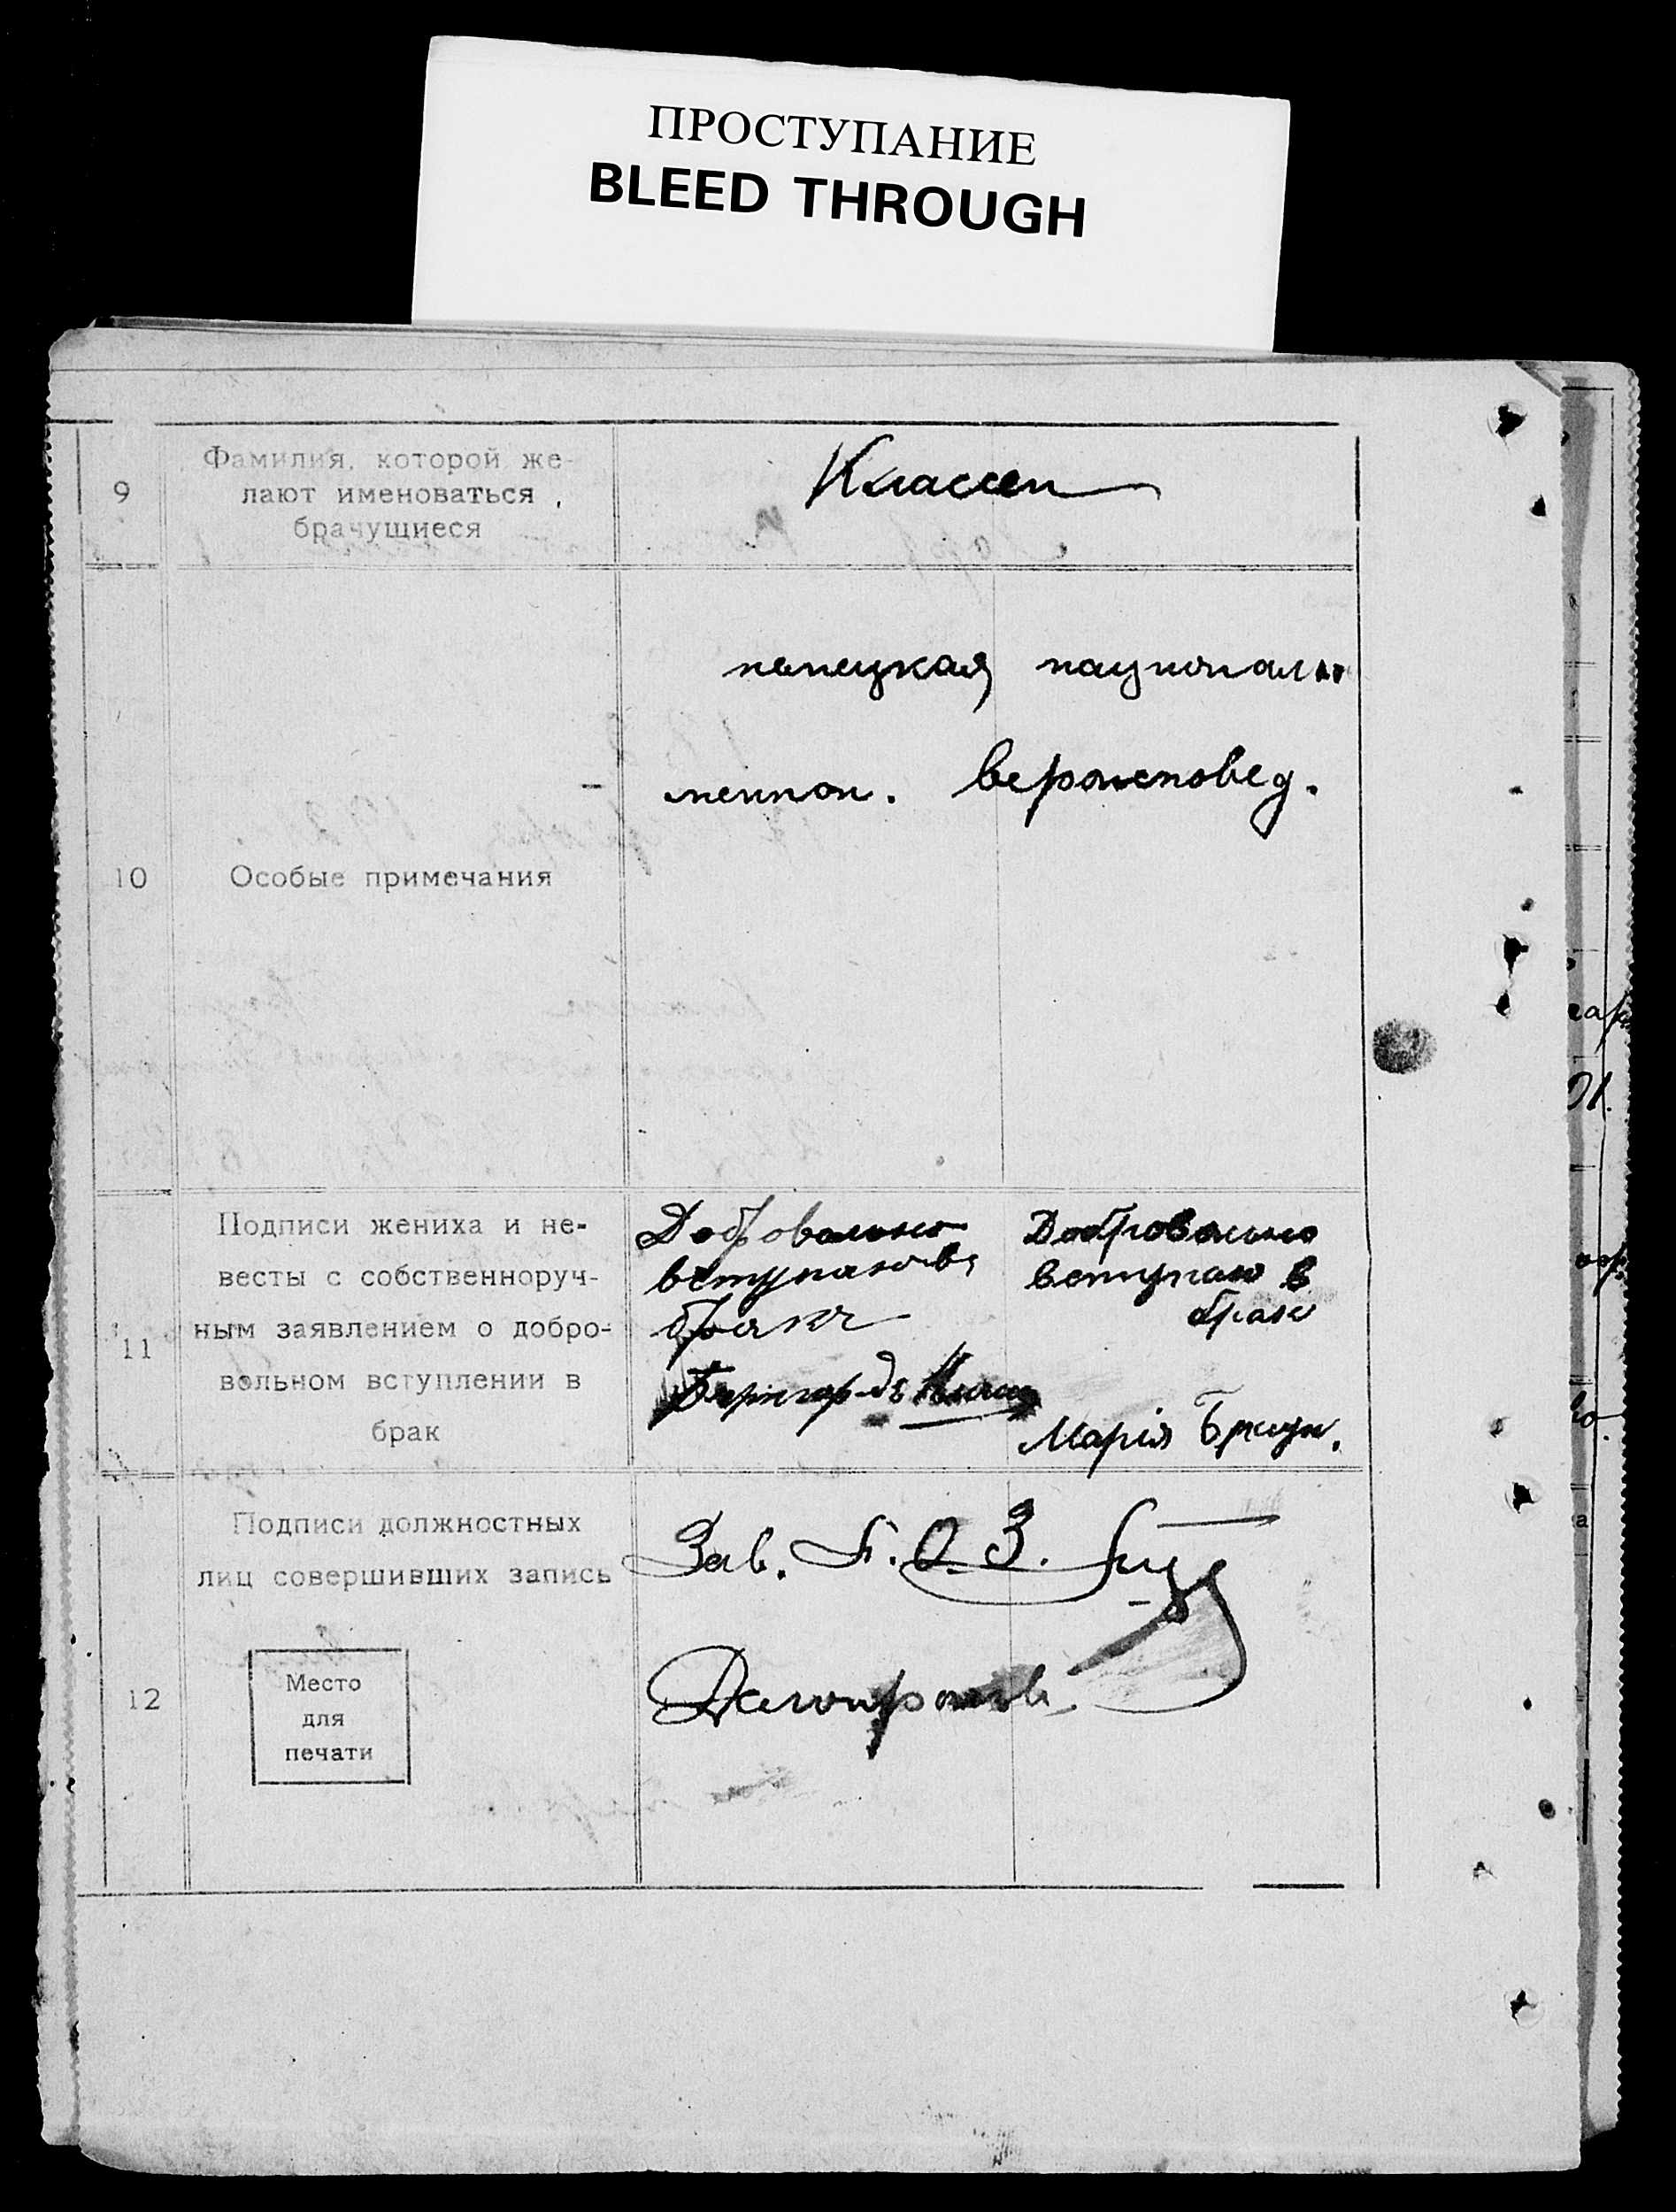 ПРОСТУПАНИЕ
BLEED THROUGH
9
Фамилия, которой же-
лают именоваться ,
брачущиеся
Классен
немецкая национальн
меннон. вероисповед.
10
Особые примечания
11
Подписи жениха и не-
весты с собственноруч-
ным заявлением о добро-
вольном вступлении в
брак
Добровольно
вступаю въ
бракъ
Бернгардъ
Добровольно
вступаю в
брак
Марія Браун.
12
Подписи должностных
лиц совершивших запись
Зав. П.О.З.
Место
для
печати